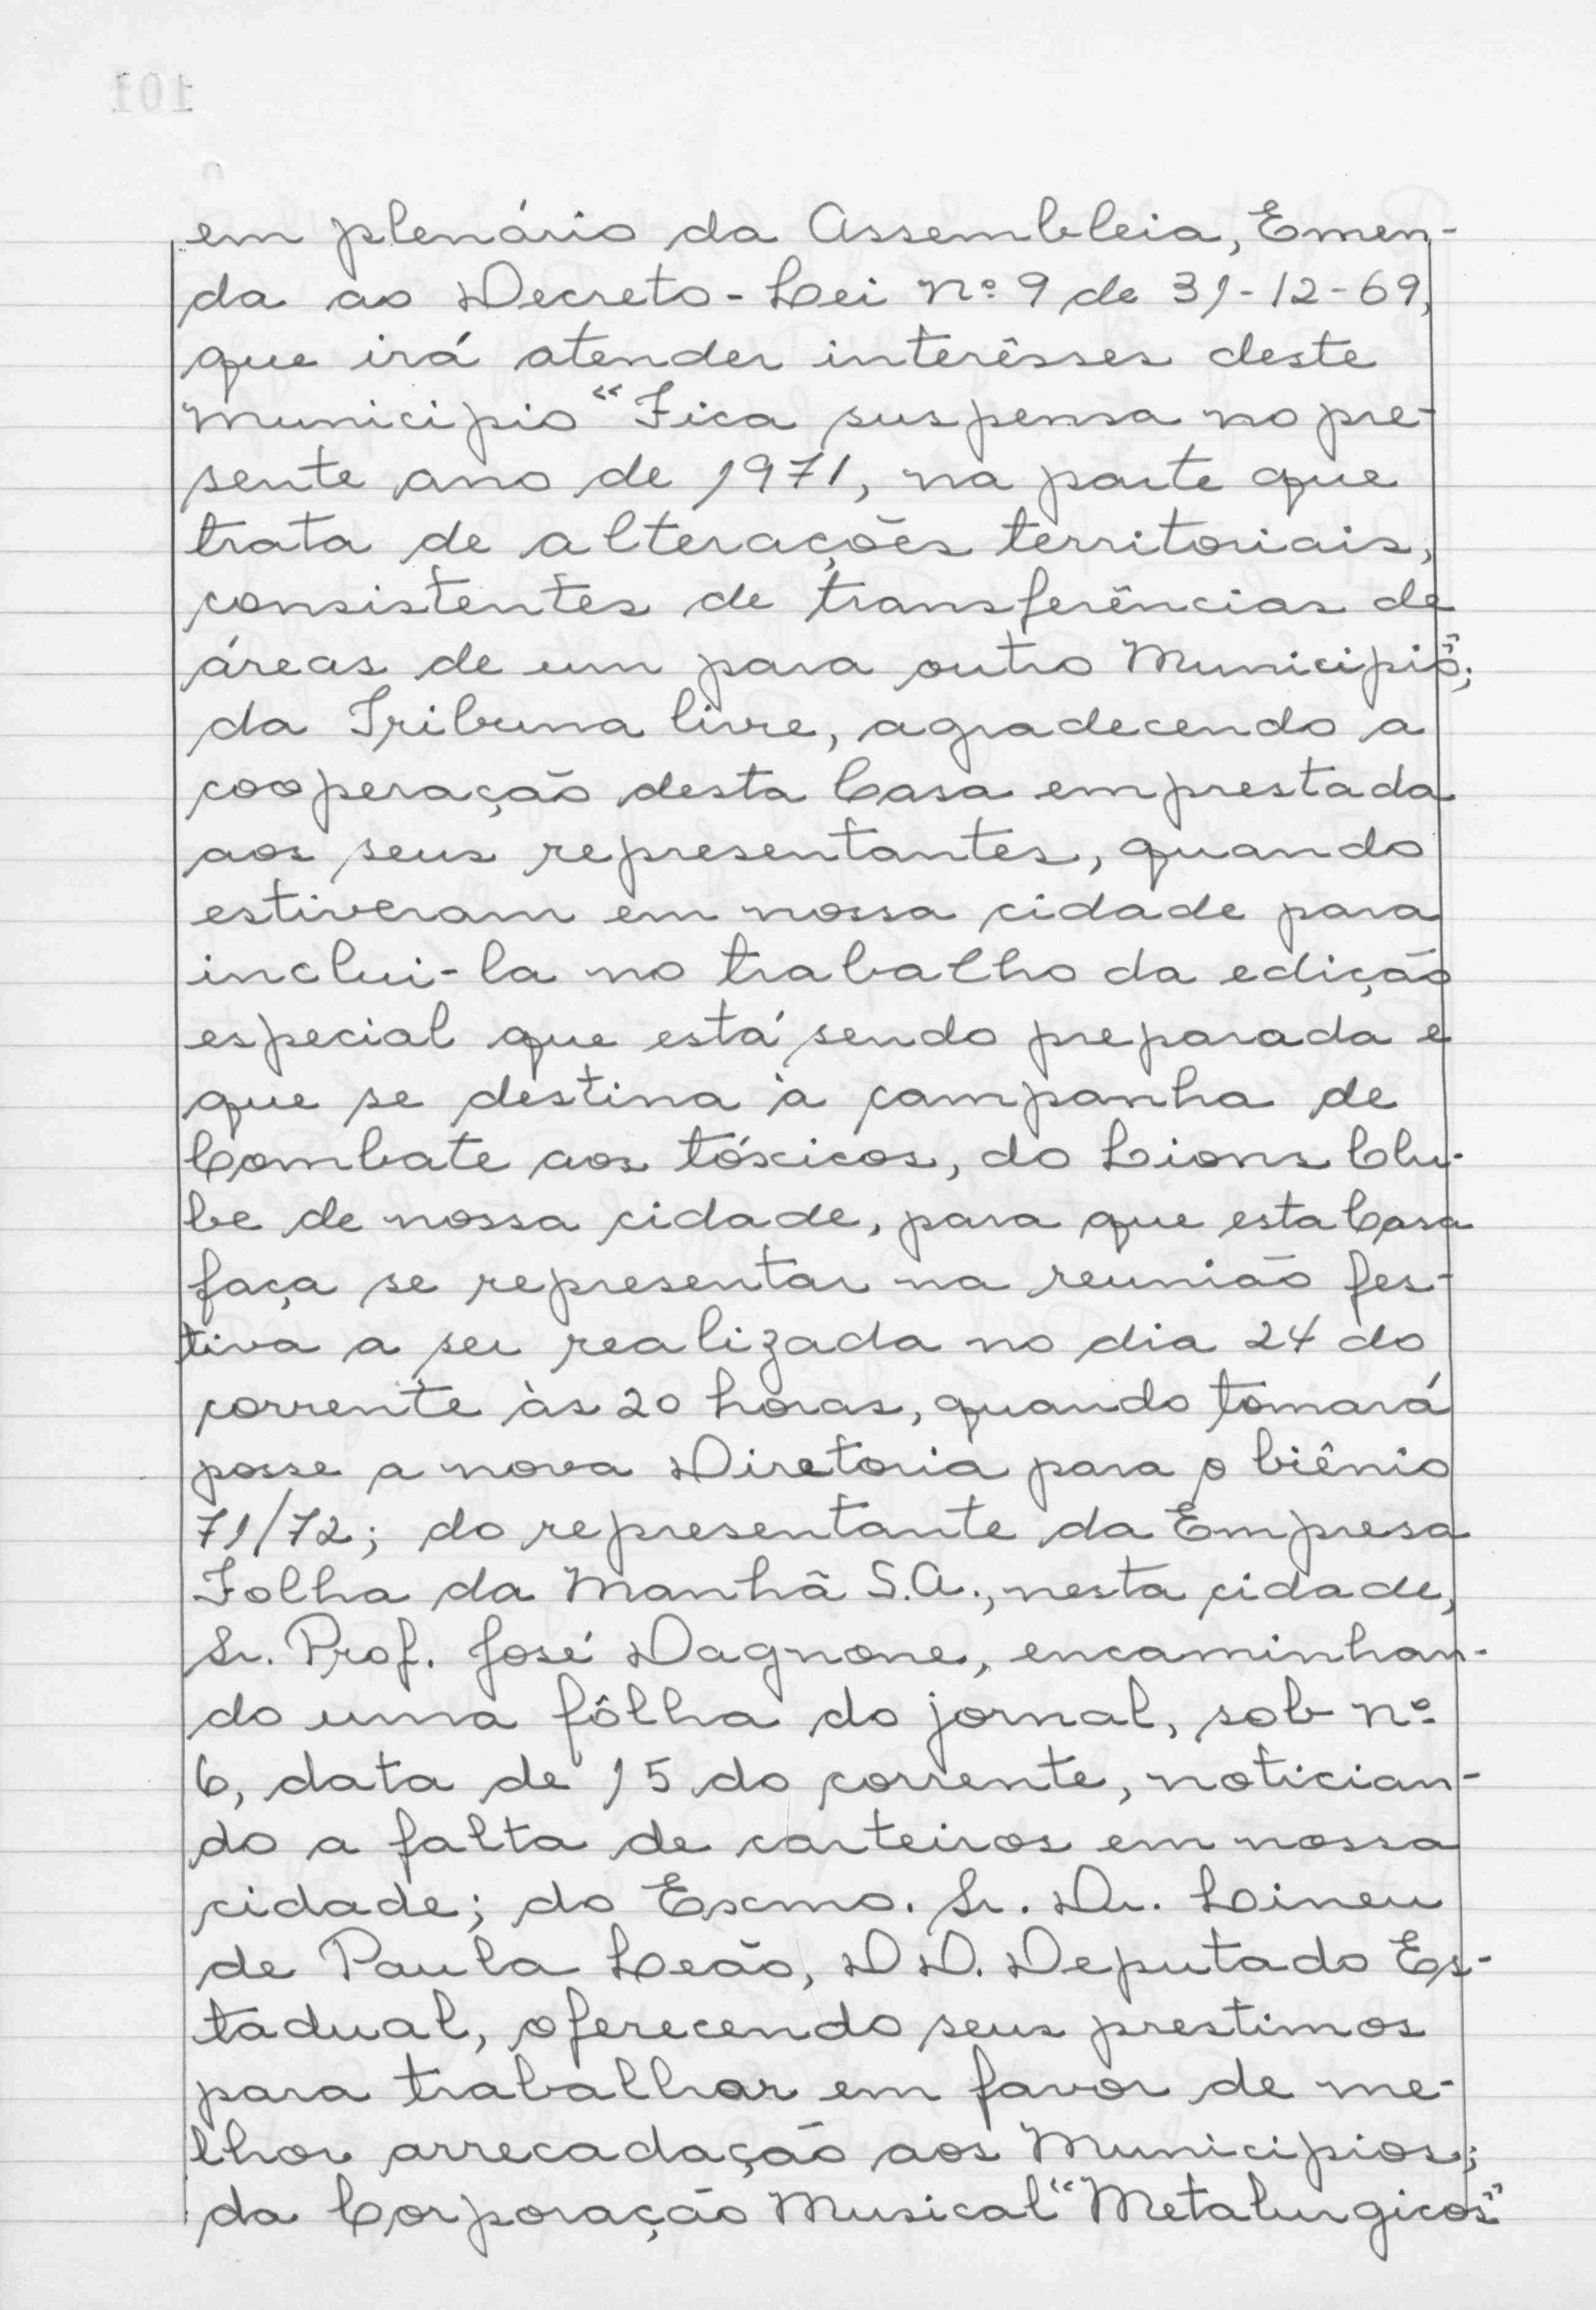 em plenário da Assembleia, Emen-
da ao Decreto-Lei nº 9 de 31-12-69,
que irá atender interêsses deste
Municipio "Fica suspensa no pre-
sente ano de 1971, na parte que
trata de alterações territoriais,
consistentes de transferências de
áreas de um para outro Municipio";
da Tribuna livre, agradecendo a
cooperação desta Casa emprestada
aos seus representantes, quando
estiveram em nossa cidade para
inclui-la no trabalho da edição
especial que está sendo preparada e
que se destina à campanha de
Combate aos tóxicos, do Lions Clu-
be de nossa cidade, para que esta Casa
faça se representar na reunião fes-
tiva a ser realizada no dia 24 do
corrente às 20 horas, quando tomará
posse a nova Diretoria para o biênio
71/72; do representante da Empresa
Folha da Manhã S.A., nesta cidade,
Sr. Prof. José Dagnone, encaminhan-
do uma fôlha do jornal, sob nº
6, data de 15 do corrente, notician-
do a falta de carteiros em nossa
cidade; do Exmo. Sr. Dr. Lineu
de Paula Leão, DD. Deputado Es-
tadual, oferecendo seus prestimos
para trabalhar em favor de me-
lhor arrecadação aos Municipios;
da Corporação Musical "Metalurgicos"